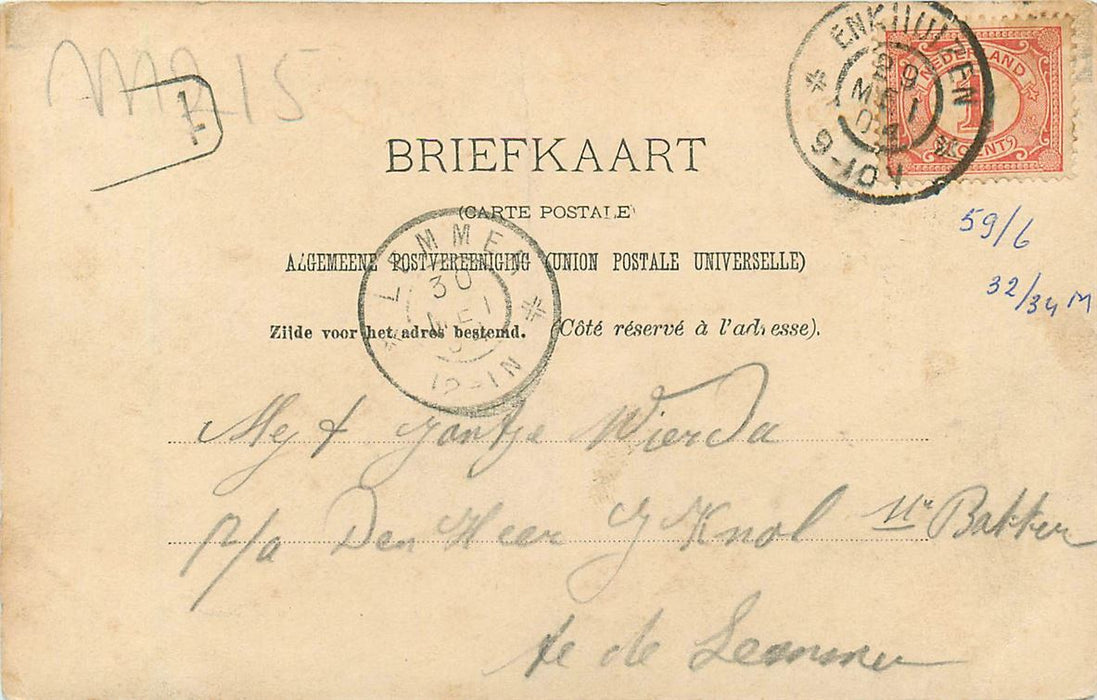 MR15
1
ENKHUIZEN
29
MEI
04
9-10V
NEDERLAND
1
CENT
BRIEFKAART
(CARTE POSTALE)
59/6
ALGEMEENE POSTVEREENIGING (UNION POSTALE UNIVERSELLE)
32/34 M
Zijde voor het adres bestemd. (Côté réservé à l'adresse).
LEMMER
30
MEI
12-1N
Mejf Jantje Wierda
p/a Den Heer J Knol Mr Bakker
te de Lemmer